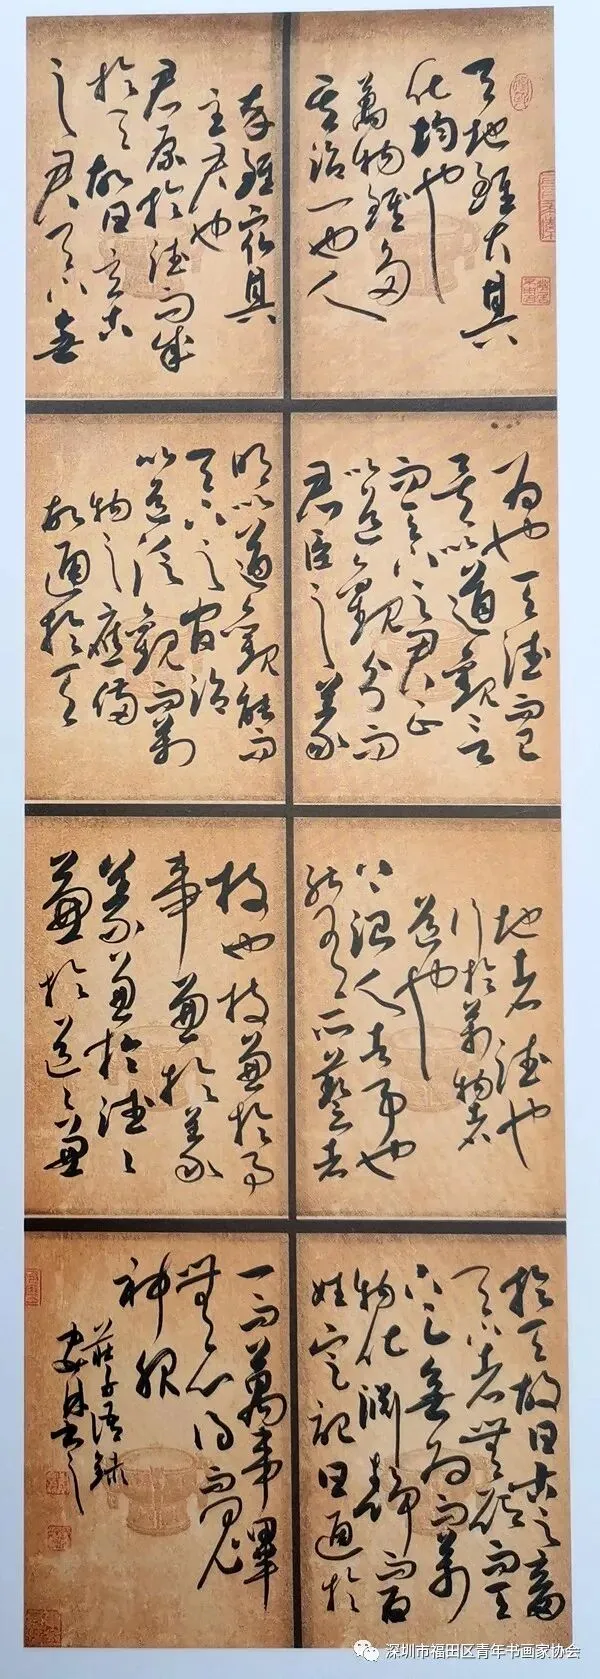 天地雖大其
化均也
萬物雖多
其治一也人
卒雖眾其
主君也
君原於德而成
於天故曰玄古
之君天下無
為也天德而已
矣以道觀言
而天下之君正
以道觀分而
君臣之義
明以道觀能而
天下之官治
以道泛觀而萬
物之應備
故通於天
地者德也
行於萬物者
道也
上治人者事也
能有所藝者
技也技兼於事
事兼於義
義兼於德德
兼於道道兼
於天故曰古之畜
天下者無欲而天
下足無為而萬
物化淵靜而百
姓定記曰通於
一而萬事畢
無心得而鬼
神服
莊子語錄
深圳市福田区青年书画家协会